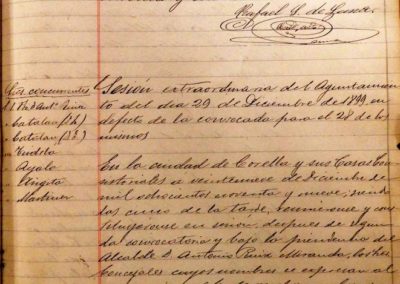 Rafael S. de Luna
Los concurrentes
Catalan
Catalan
Virto
Ayala
Martinez
Sesión extraordinaria del Ayuntamien
to del dia 29 de Diciembre de 1899, en
defecto de la convocada para el 28 de los
mismos
En la ciudad de Corella y sus Casas Con
sistoriales a veintinueve de Diciembre de
mil ochocientos noventa y nueve; siendo
las cinco de la tarde, reunieronse y cons
tituyeronse en sesion, despues de segun
da convocatoria y bajo la presidencia del
Alcalde D. Antonio Ruiz Miranda, los Sres
Concejales cuyos nombres se expresan al